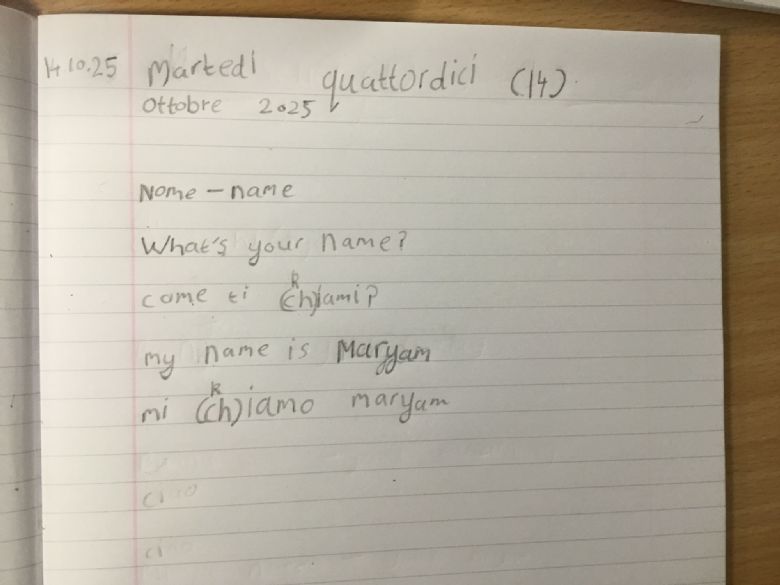 14.10.25 Martedì quattordici (14)
Ottobre 2025
Nome – name
What's your name?
k
come ti (ch)iami?
my name is Maryam
k
mi (ch)iamo maryam
ciao
ci